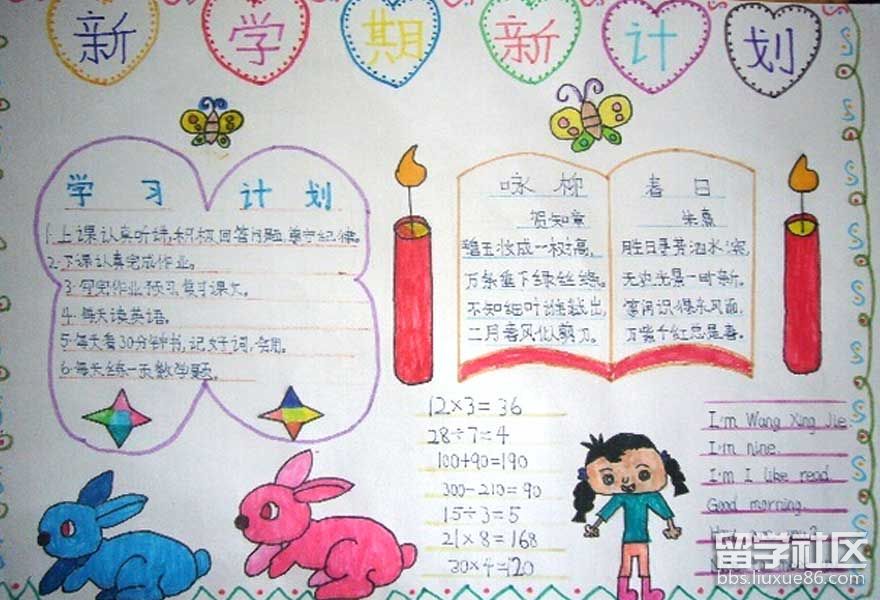 新学期新计划
学习计划
1.上课认真听讲,积极回答问题,遵守纪律。
2.下课认真完成作业。
3.写完作业预习,复习课文。
4.每天读英语。
5.每天看30分钟书,记好词,好句。
6.每天练一页数学题。
咏柳
贺知章
碧玉妆成一树高,
万条垂下绿丝绦。
不知细叶谁裁出,
二月春风似剪刀。
春日
朱熹
胜日寻芳泗水滨,
无边光景一时新。
等闲识得东风面,
万紫千红总是春。
12×3=36
28÷7=4
100+90=190
300-210=90
15÷3=5
21×8=168
30×4=120
I'm Wang Xing Jie.
I'm nine.
I'm I like read.
Good morning.
留学社区
bbs.liuxue86.com